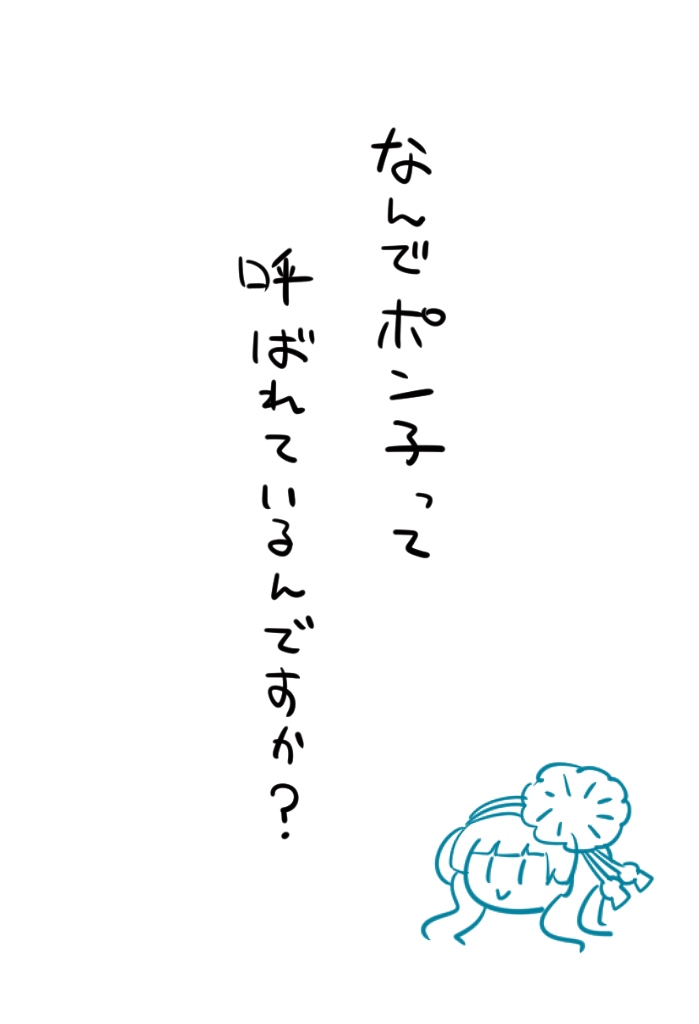 なんでポン子って
呼ばれているんですか?